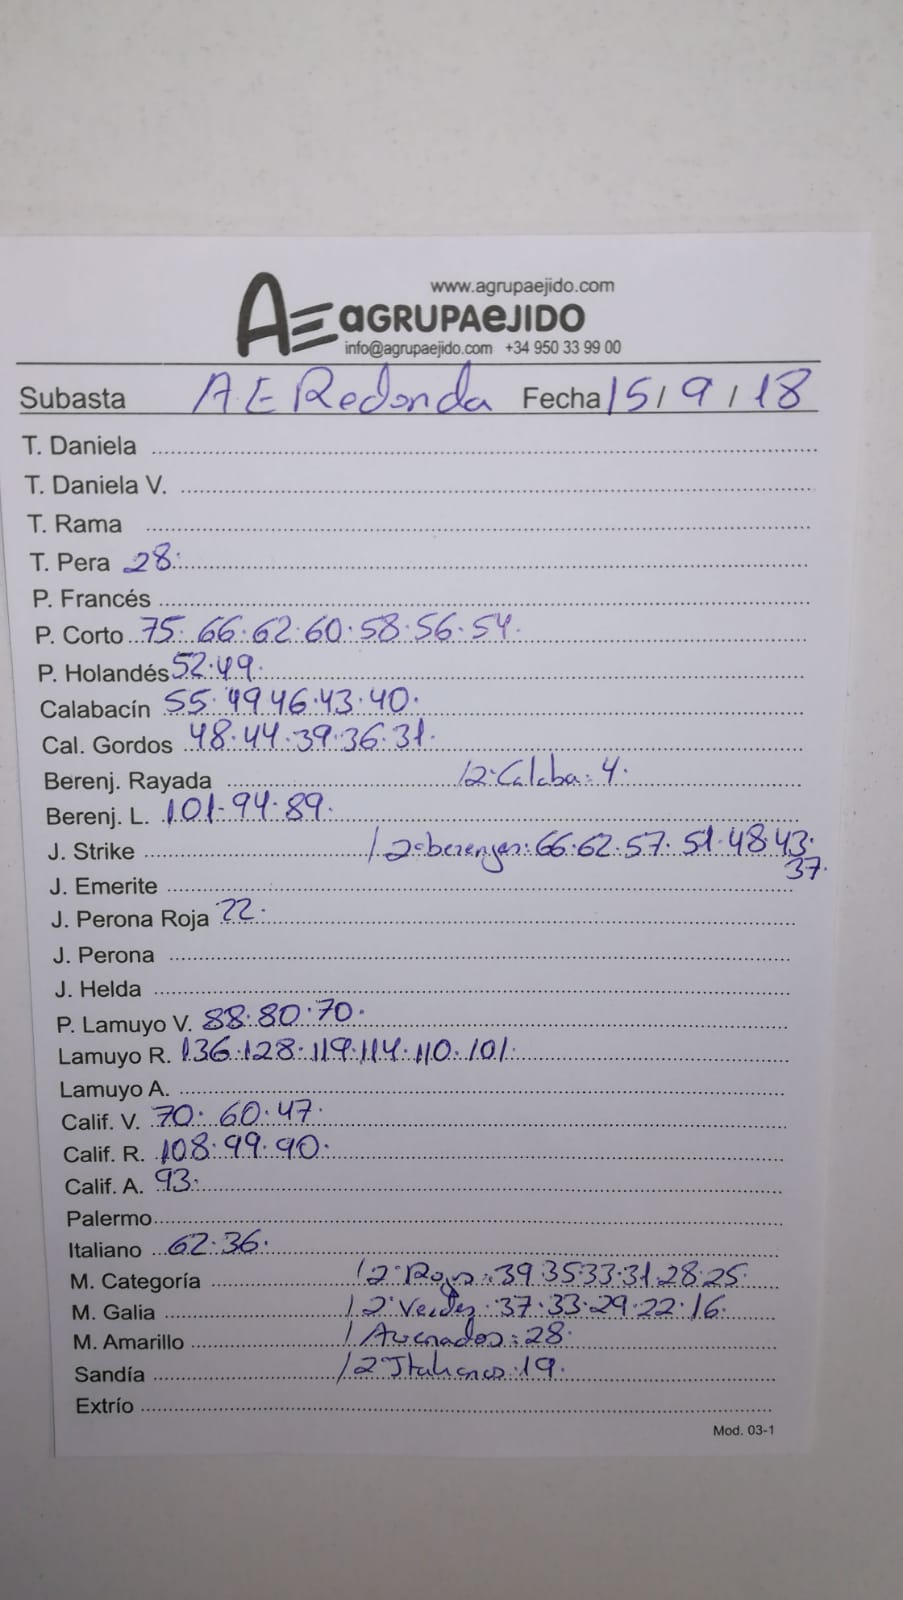 www.agrupaejido.com
AE aGRUPAeJIDO
info@agrupaejido.com +34 950 33 99 00
Subasta AE Redonda Fecha 15/9/18
T. Daniela
T. Daniela V.
T. Rama
T. Pera 28.
P. Francés
P. Corto 75. 66.62.60.58.56.54.
P. Holandés 52.49.
Calabacín 55.49 46.43.40.
Cal. Gordos 48.44.39.36.31.
Berenj. Rayada /2ª Calaba: 4.
Berenj. L. 101-94.89.
J. Strike /2ª berenjen: 66.62.57.51.48.43.
37.
J. Emerite
J. Perona Roja 22.
J. Perona
J. Helda
P. Lamuyo V. 88.80.70.
Lamuyo R. 136.128.119.114.110.101.
Lamuyo A.
Calif. V. 70. 60.47.
Calif. R. 108.99.90.
Calif. A. 93.
Palermo
Italiano 62.36.
M. Categoría /2ª Rojos: 39 35.33.31.28.25.
M. Galia /2ª Verdes: 37.33.29.22.16.
M. Amarillo / Asurcados: 28.
Sandía /2ª Italianos: 19.
Extrío
Mod. 03-1